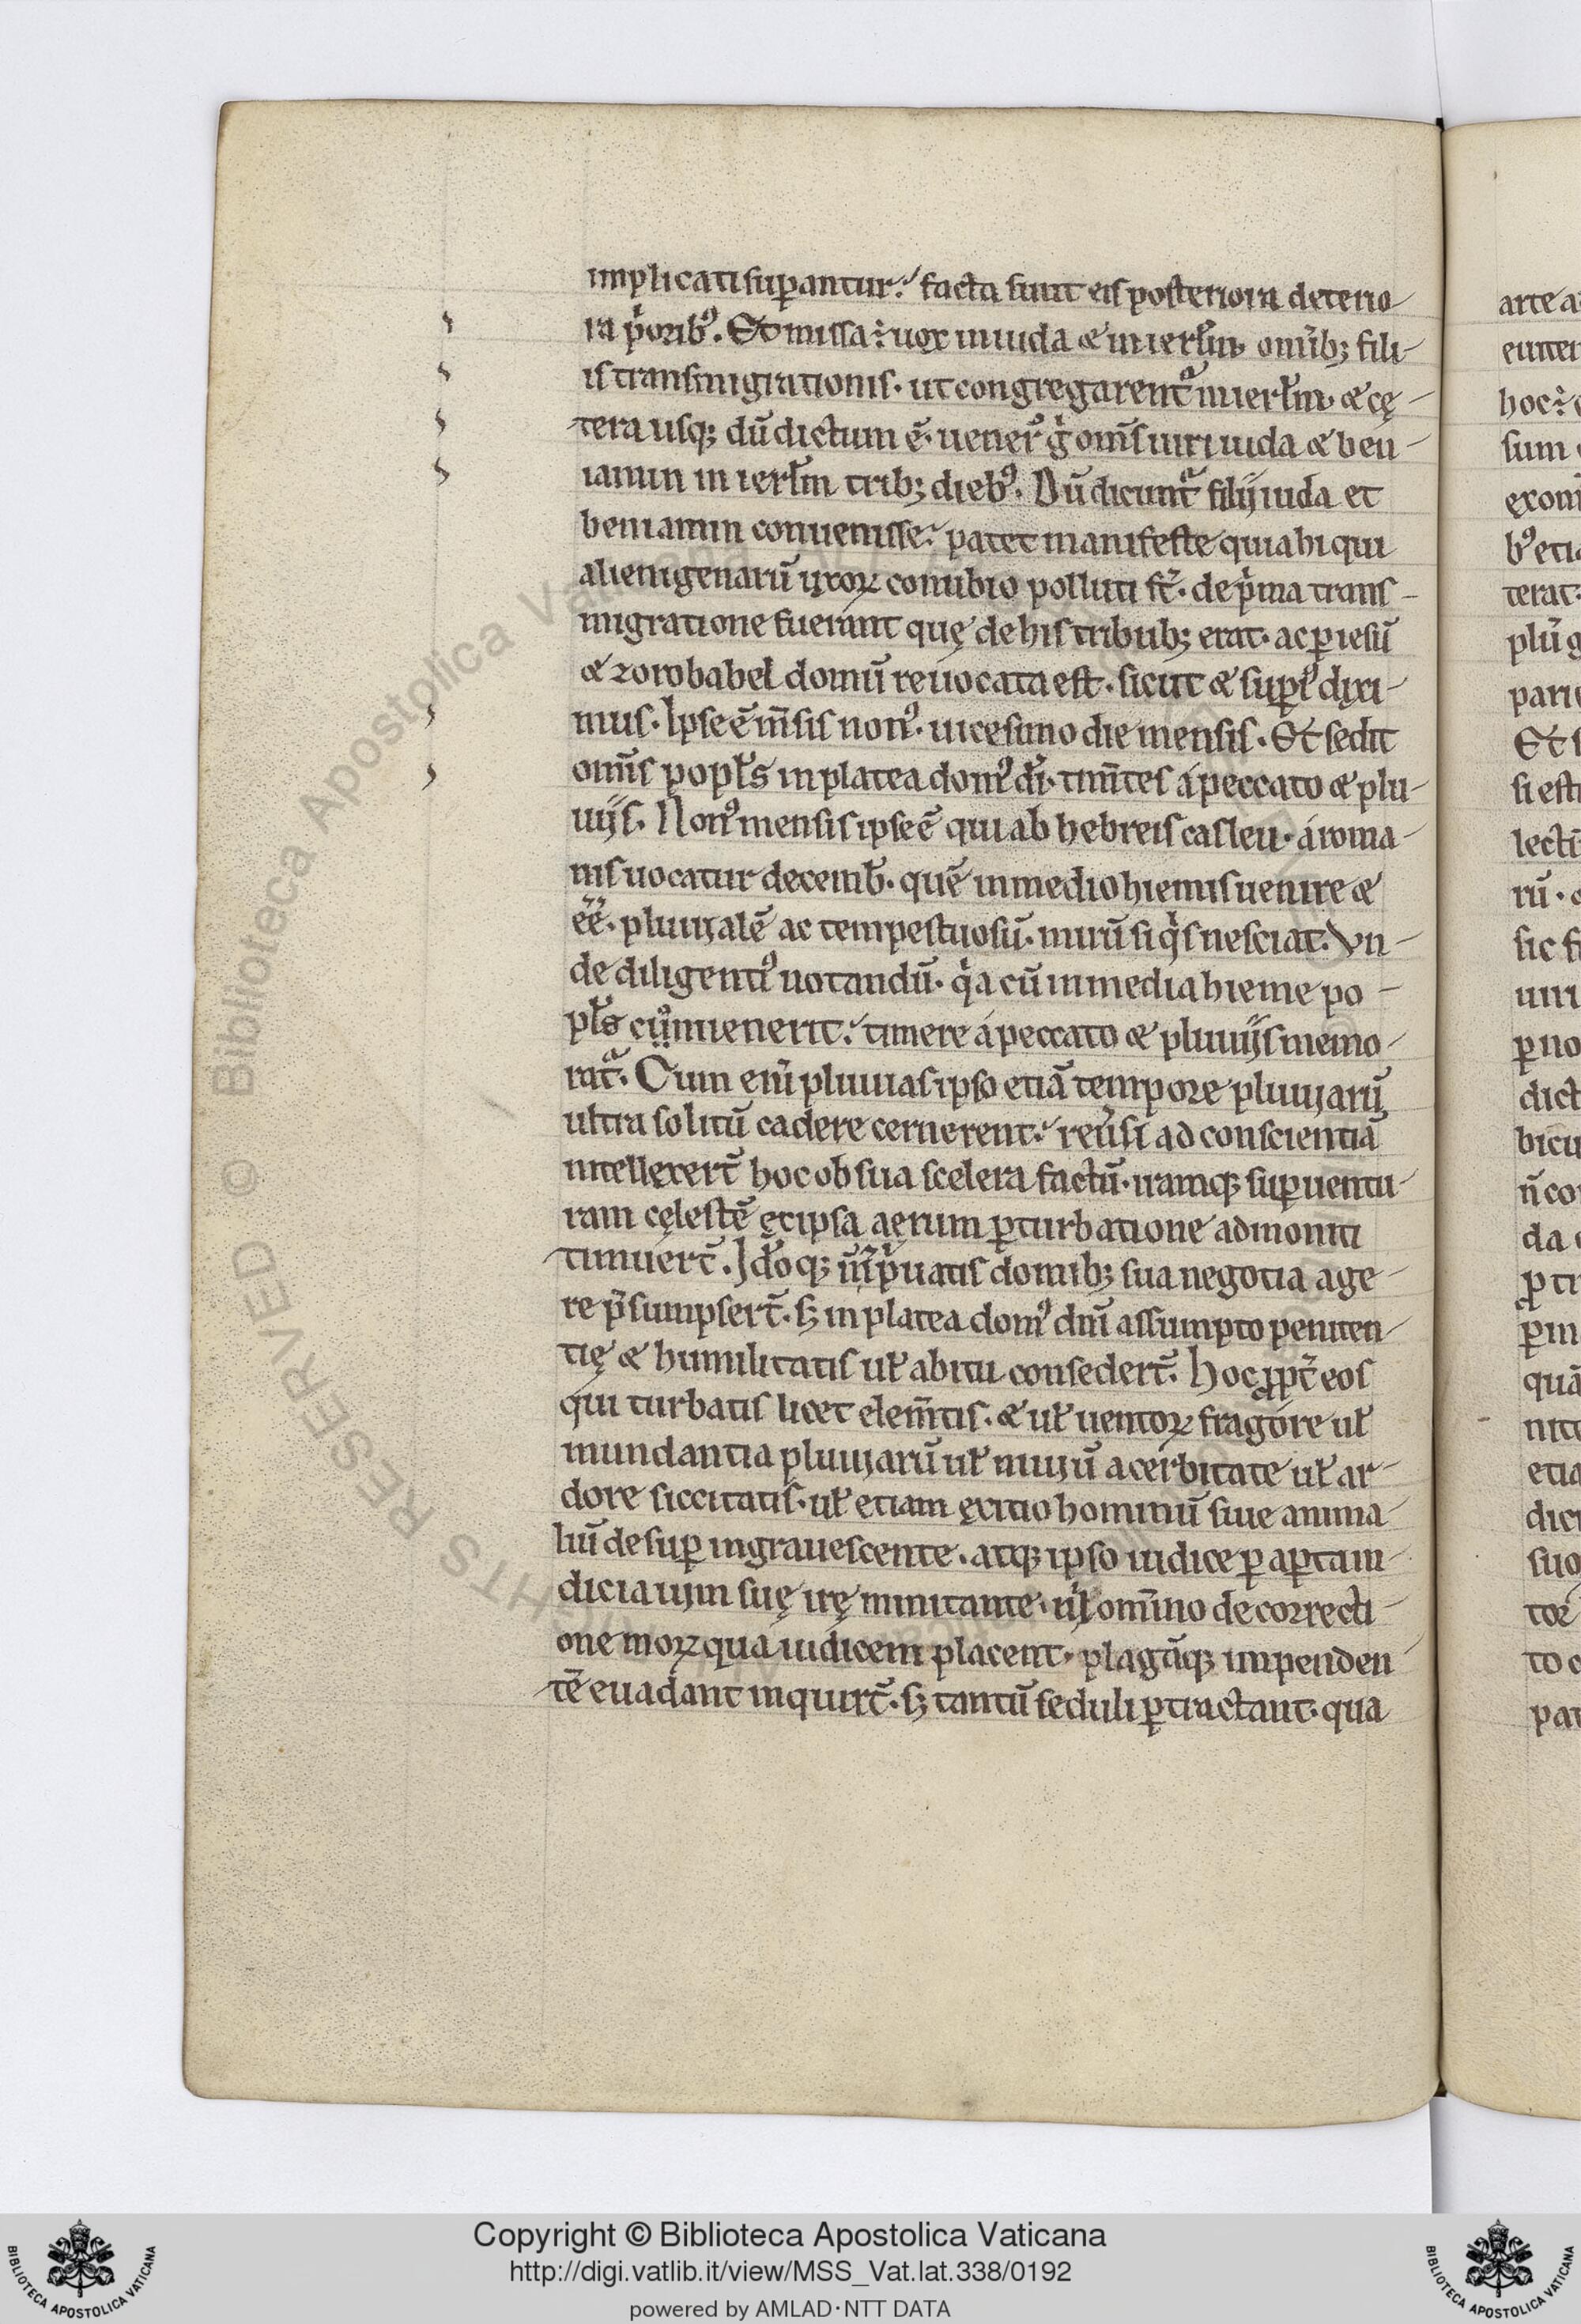 implicati suꝑantur. facta sunt eis posteriora deterio
ra p̍oribꝰ. Et missa ÷ uox in iuda & in ierl̄m omībꝫ fili
is transmigrationis. ut congregarent᷑ in ierl̄m & cę
tera usqꝫ dū dictum ē. uener̄ ḡ om̄s uiri iuda & ben
iamin in ierl̄m tribꝫ diebꝰ. Dū dicunt᷑ filij iuda et
beniamin conuenisse. patet manifeste quia hi qui
alienigenarū uxoꝝ conubio polluti st̄. de p̍ma trans
migratione fuerant quę de his tribubꝫ erat. ac ꝑ iesū
& zorobabel domū reuocata est. sicut & suꝑiꝰ dixi
mus. Ipse ē m̄sis nonꝰ. uicesimo die mensis. Et sedit
om̄is popl̄s in platea domꝰ dī. tim̄tes á peccato & plu
uijs. Nonꝰ mensis ipse ē qui ab hebreis casleu. á roma
nis uocatur decemb̄. quē in medio hiemis uenire &
eē. pluuialē ac tempestuosū. mirū si q̍s nesciat. Vn
de diligentiꝰ notandū. q̍a cū in media hieme po
pl̄s cūuenerit. timere á peccato & pluuijs memo
rat᷑. Cum eni̅ pluuias ipso etiā tempore pluuiarū
ultra solitū cadere cernerent. reu̅si ad conscientiā
intellexert̄ hoc ob sua scelera factū. iramqꝫ suꝑuentu
ram cęlestē et ipsa aerum ꝑturbatione admoniti
timuert̄. Id̄oqꝫ n̄ in p̍uatis domibꝫ sua negotia age
re p̄sumpsert̄. sꝫ in platea domꝰ dn̄i assumpto peniten
tię & humilitatis ut̄ abitu consedert̄. Hoc ꝓpt̄ eos
qui turbatis licet elem̄tis. & ul̄ uentoꝝ fragore ul̄
inundantia pluuiarū ul̄ niuiū acerbitate ul̄ ar
dore siccitatis. ul̄ etiam exitio hominū siue anima
liū desuꝑ ingrauescente. atqꝫ ipso iudice ꝑ aꝑta in
dicia uim suę irę minitante. nil̍ om̄ino de correcti
one moꝝ qua iudicem placent. plagāqꝫ impenden
tē euadant inquirt̄. sꝫ tantū seduli ꝑtractant. qua
Copyright © Biblioteca Apostolica Vaticana
http://digi.vatlib.it/view/MSS_Vat.lat.338/0192
powered by AMLAD·NTT DATA